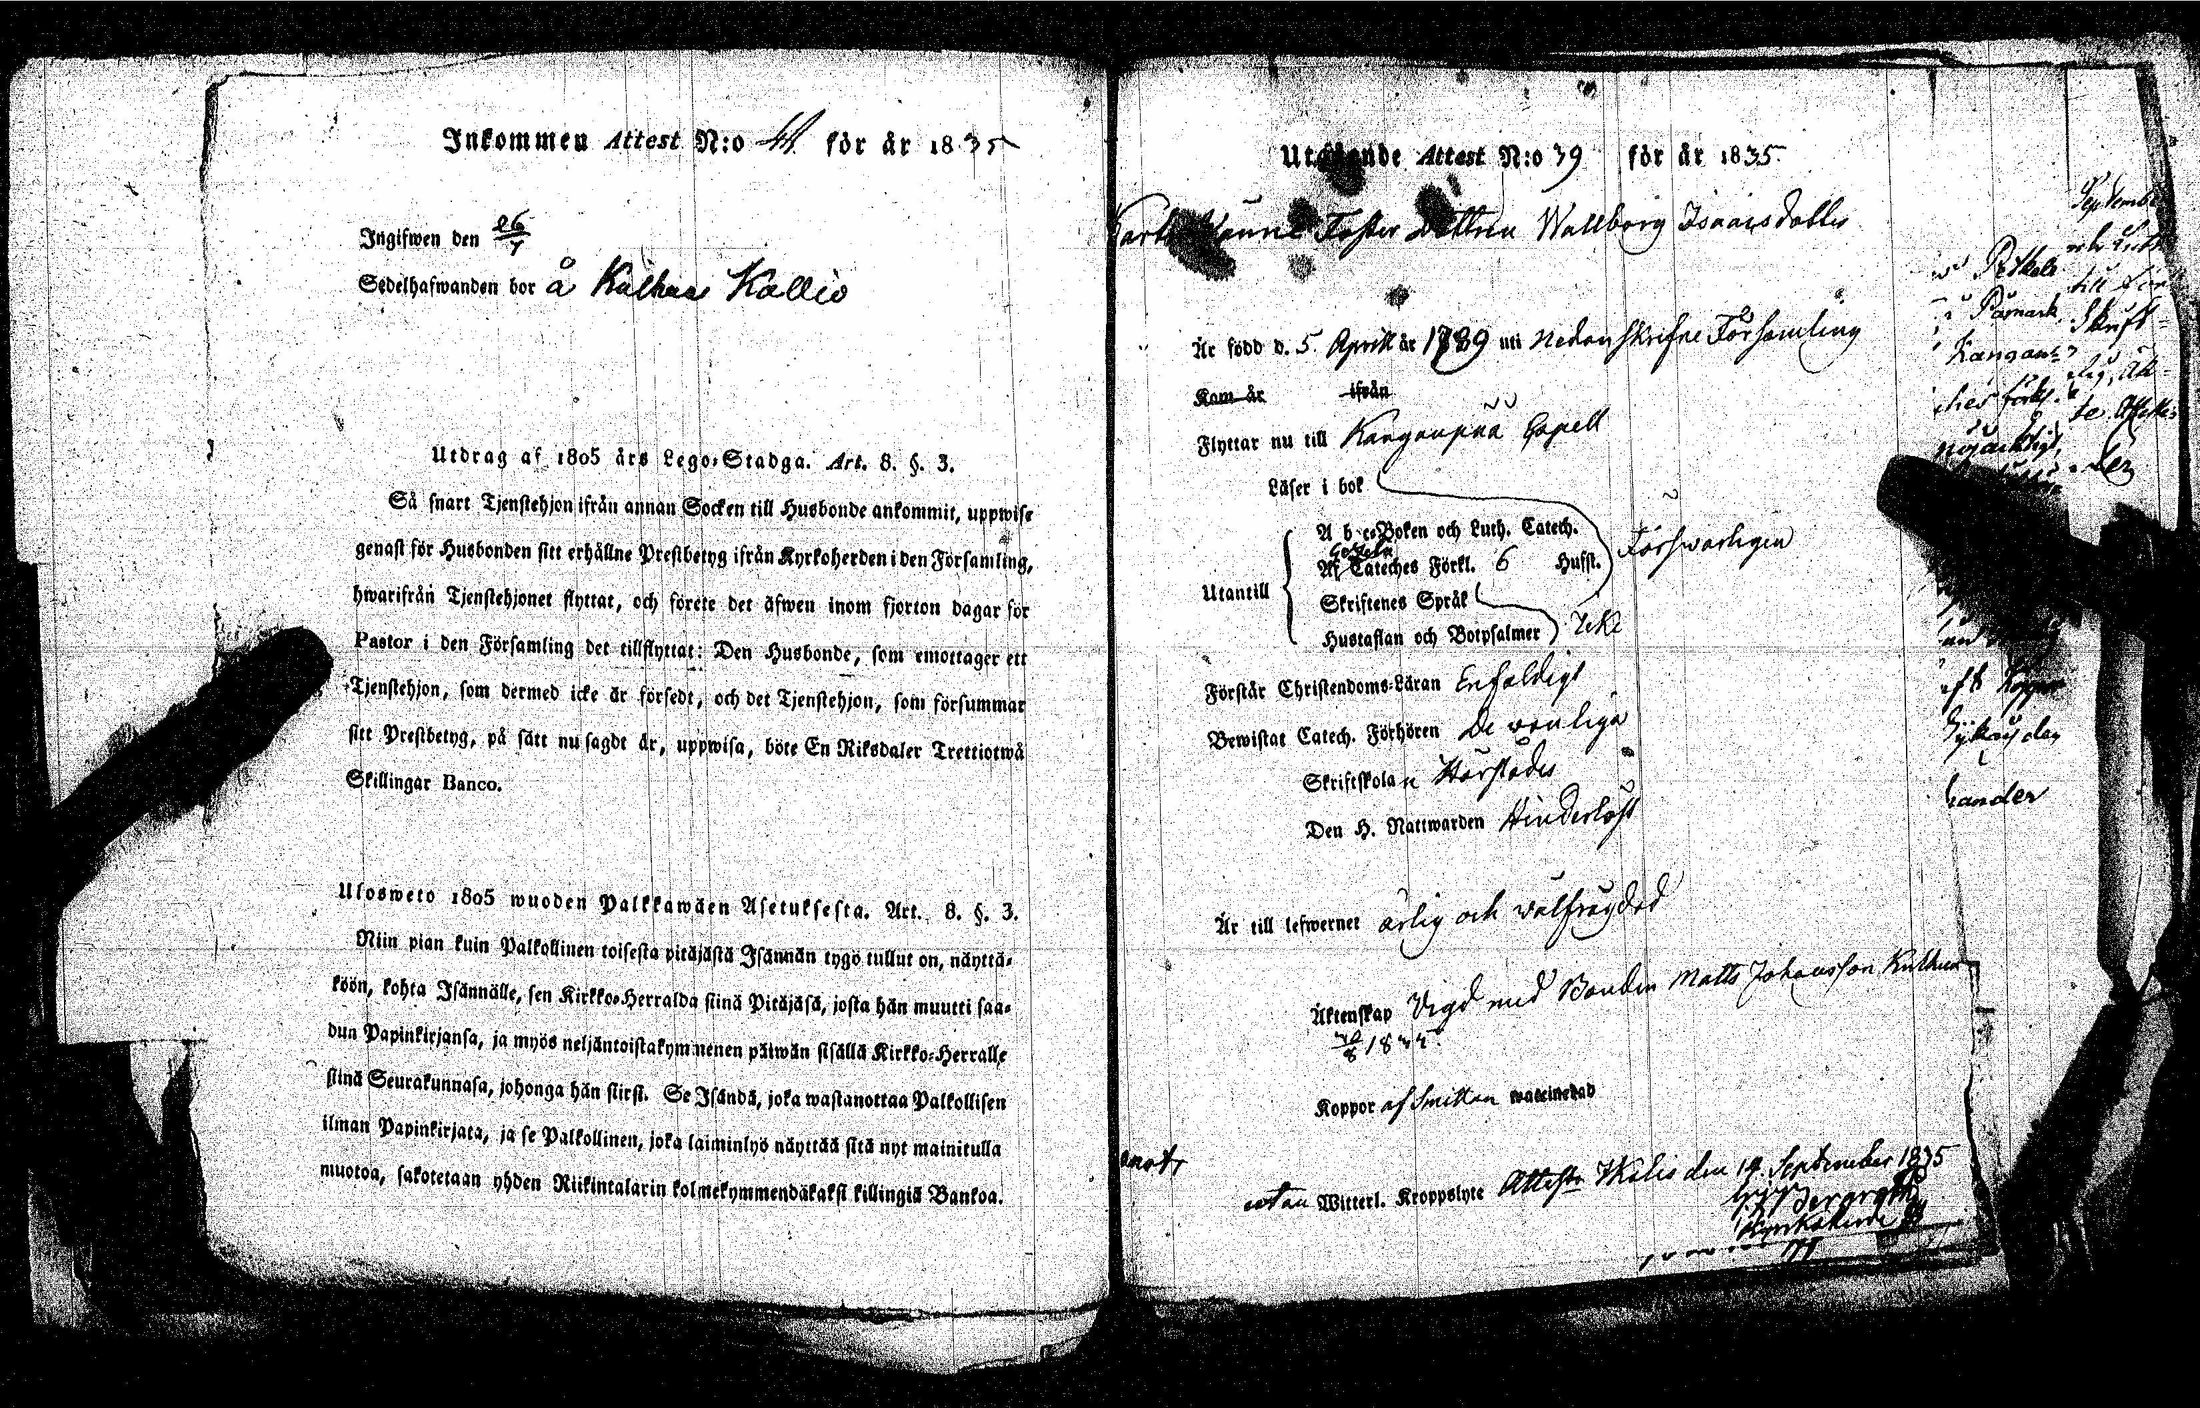 Inkommen Attest N:o 44 för år 1835
Ingifwen den 26/9
Sedelhafwanden bor å Kulhua Kallio
Utdrag af 1805 års Lego-Stadga. Art. 8. §. 3.
Så snart Tjenstehjon ifrån annan Socken till Husbonde ankommit, uppwise
genast för Husbonden sitt erhållne Prestbetyg ifrån Kyrkoherden i den Församling,
hwarifrån Tjenstehjonet flyttat, och förete det äfwen inom fjorton dagar för
Pastor i den Församling det tillflyttat: Den Husbonde, som emottager ett
Tjenstehjon, som dermed icke är försedt, och det Tjenstehjon, som försummar
sitt Prestbetyg, på sätt nu sagdt är, uppwisa, böte En Riksdaler Trettiotwå
Skillingar Banco.
Ulosweto 1805 wuoden Palkkawäen Asetuksesta. Art. 8. §. 3.
Niin pian kuin Palkollinen toisesta pitäjästä Isännän tygö tullut on, näyttä-
köön, kohta Isännälle, sen Kirkko-Herralda siinä Pitäjäsä, josta hän muutti saa-
dun Papinkirjansa, ja myös neljäntoistakymmenen päiwän sisällä Kirkko-Herralle
siinä Seurakunnasa, johonga hän siirsi. Se Isändä, joka wastanottaa Palkollisen
ilman Papinkirjata, ja se Palkollinen, joka laiminlyö näyttää sitä nyt mainitulla
muotoa, sakotetaan yhden Riikintalarin kolmekymmendäkaksi killingiä Bankoa.
Utgående Attest N:o 39 för år 1835.
Foster Dottren Wallborg Isaacsdotter
Är född d. 5 Aprill år 1789 uti Nedanskrifne Församling
Kom år ifrån
Flyttar nu till Kanganpää Capell
Läser i bok
A b c Boken och Luth. Catech. Försvarligen
Utantill
Af Cateches Förkl. 6 Hufst.
Skriftenes Språk
Hustaflan och Botpsalmer Icke
Förstår Christendoms-Läran Enfaldigt
Bewistat Catech. Förhören De vanliga
Skriftskolan Härstädes
Den H. Nattwarden Hinderlöst
Är till lefwernet ärlig och välfrägdad
Äktenskap Vigd med Bonden Matts Johansson
Koppor af Smittan waccinerad
utan Witterl. Kroppslyte Attest. den 19 September 1835
Kyrkoherde
September
Påmark
hander